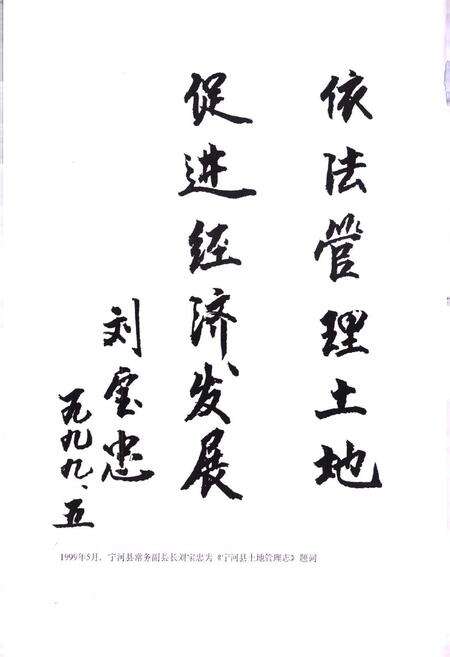 依法管理土地
促进经济发展
刘宝忠
一九九九、五
1999年5月，宁河县常务副县长刘宝忠为《宁河县土地管理志》题词